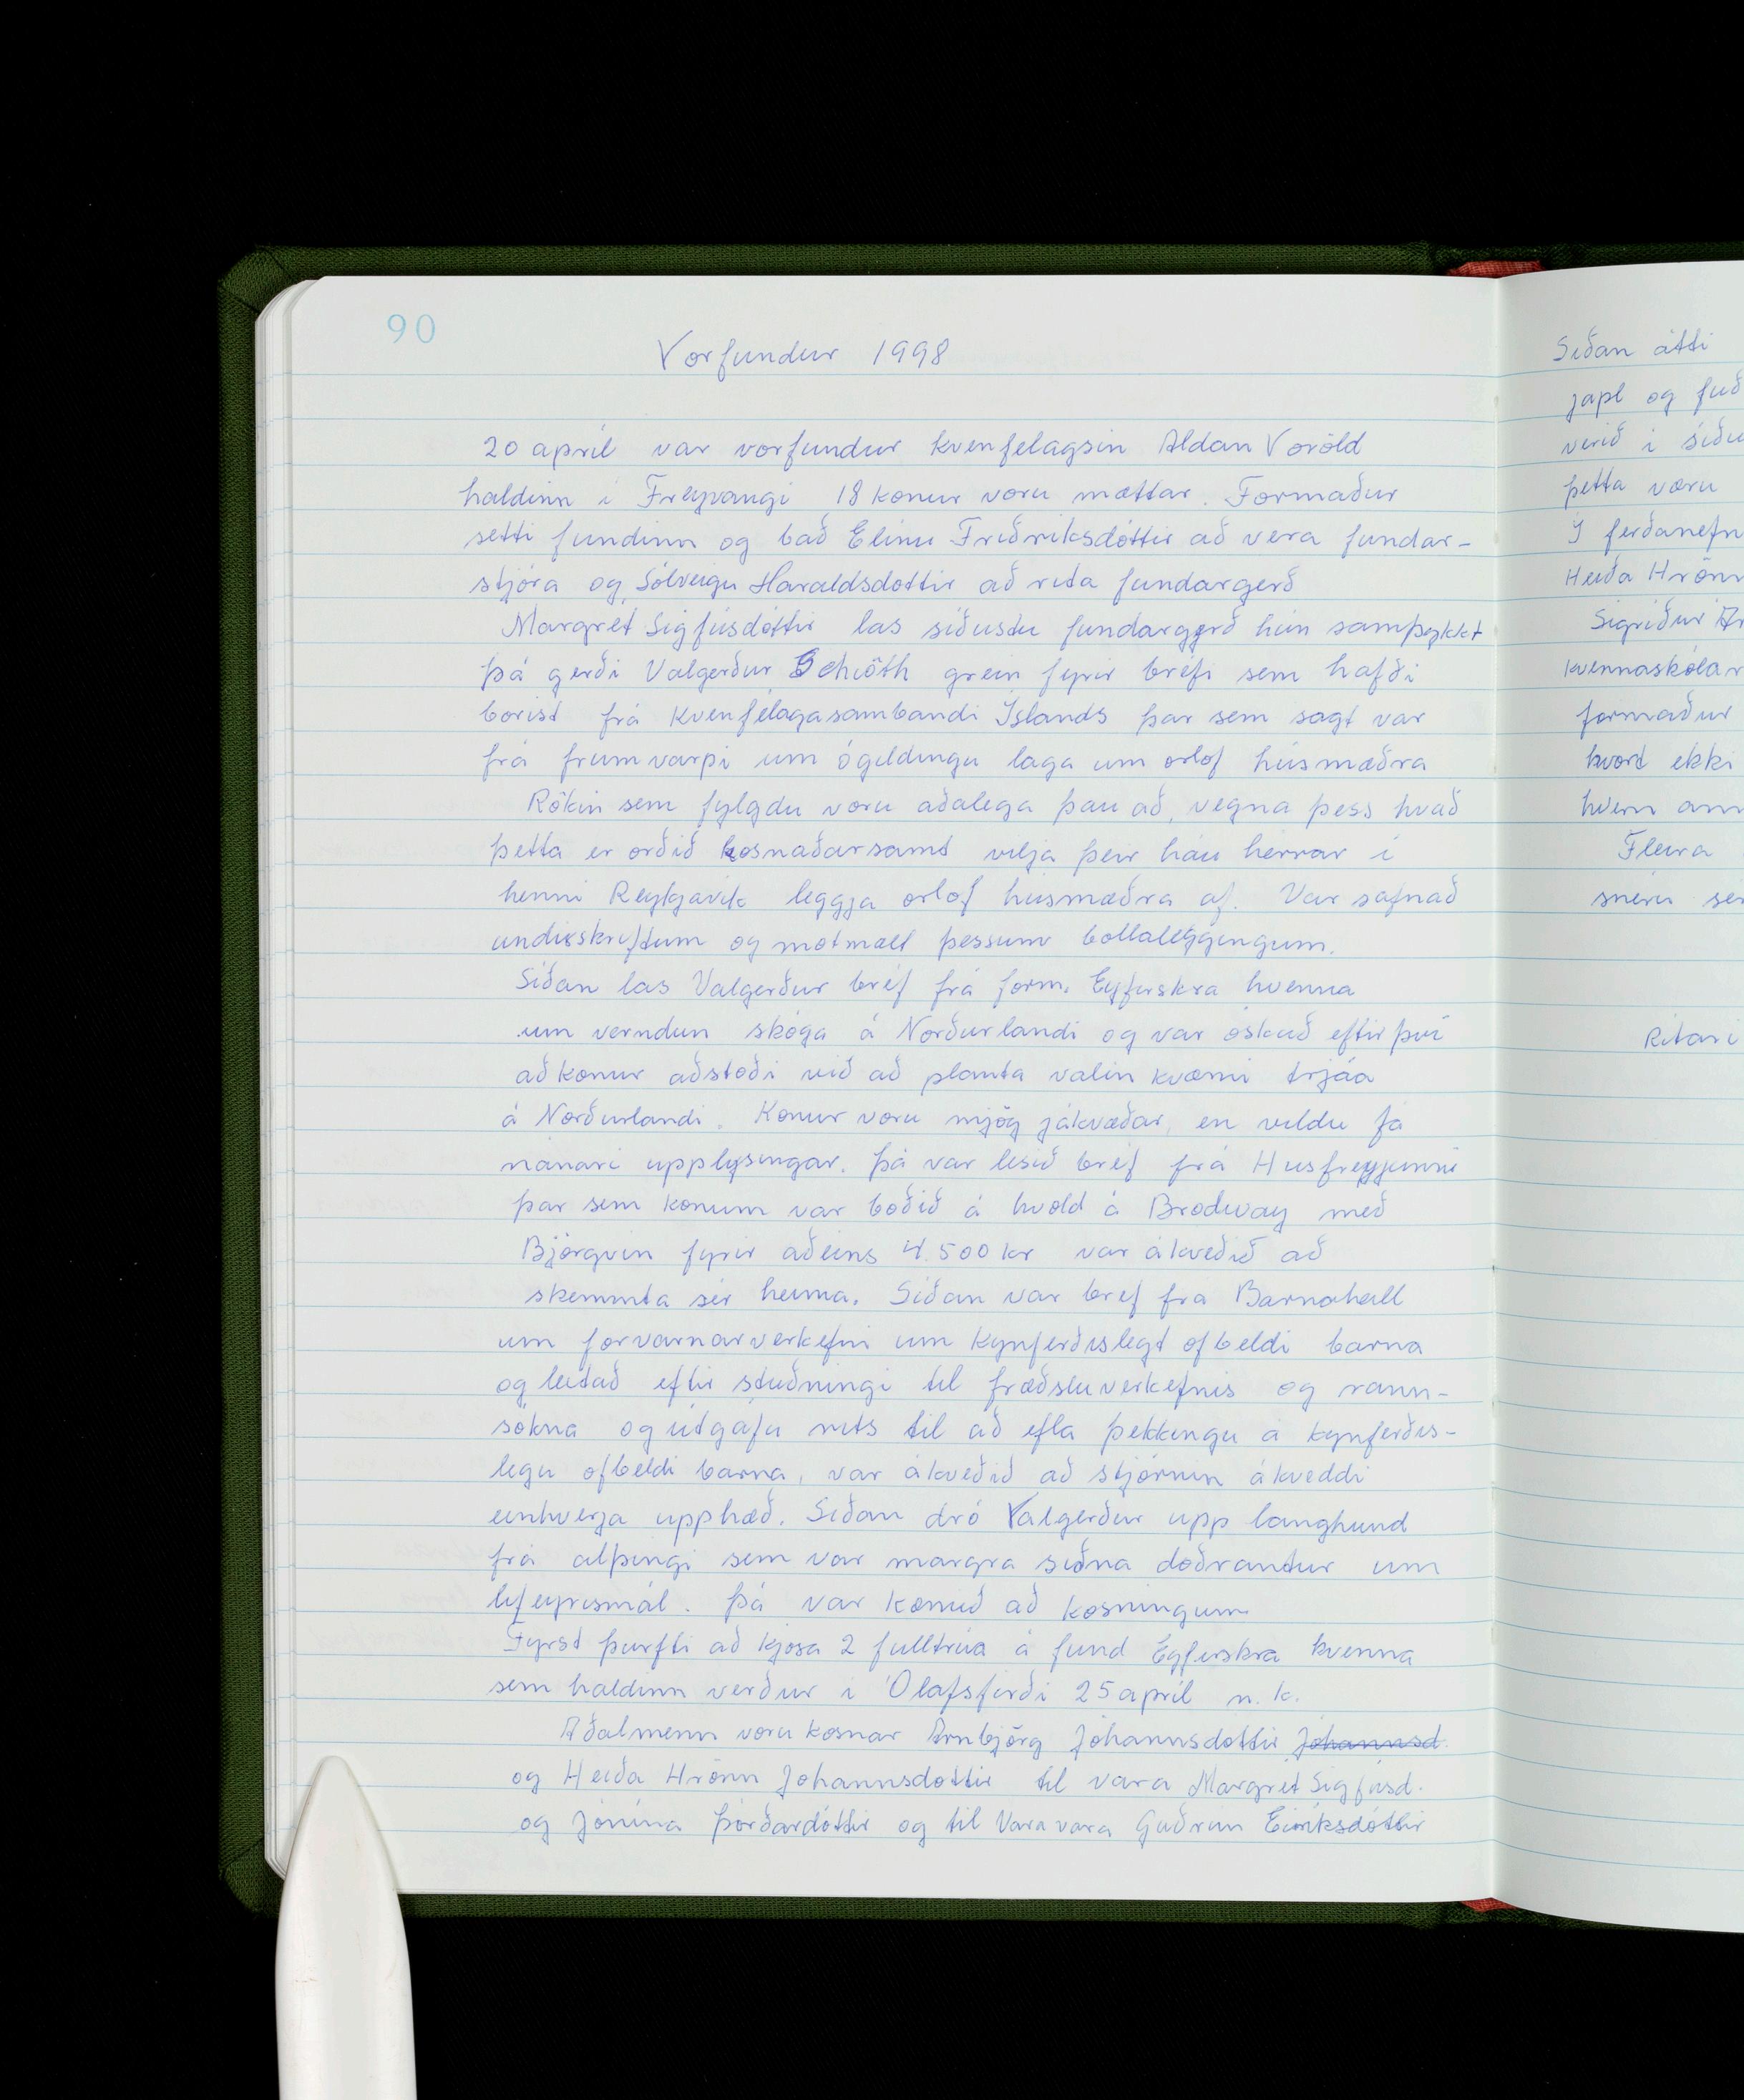 90
Vorfundur 1998
20 april var vorfundur kvenfelagsin Aldan Voröld
haldinn i Freyvangi 18 konur voru mættar. Formaður
setti fundinn og bað Elinu Friðriksdóttir að vera fundar-
stjóra og Sólveigu Haraldsdottir að rita fundargerð
Margrét Sigfúsdóttir las siðustu fundargerð hún samþykkt
þá gerði Valgerður Schiöth grein fyrir brefi sem hafði
borist frá Kvenfélagasambandi Islands þar sem sagt var
frá frumvarpi um ógildingu laga um orlof húsmæðra
Rökin sem fylgdu voru aðalega þau að, vegna þess hvað
þetta er orðið kosnaðarsamt vilja þeir háu herrar i
henni Reykjavik leggja orlof húsmæðra af. Var safnað
undirskriftum og motmælt þessum bollaleggingum.
Siðan las Valgerður bréf frá form. Eyfirskra hvenna
um verndun skóga á Norðurlandi og var óskað eftir þvi
að konur aðstoði við að planta valin kvæmi trjáa
á Norðurlandi. Konur voru mjög jákvæðar, en vildu fá
nánari upplysingar. þá var lesið bréf frá Husfreyjunni
þar sem konum var boðið á kvold á Brodway með
Björgvin fyrir aðeins 4.500 kr var ákveðið að
skemmta sér heima. Siðan var bref fra Barnaheill
um forvarnarverkefni um kynferðislegt ofbeldi barna
og leitað eftir stuðningi til fræðsluverkefnis og rann-
sókna og útgáfu rits til að efla þekkingu á kynferðis-
legu ofbeldi barna, var ákveðið að stjórnin ákveddi
einhverja upphæð. Siðan dró Valgerður upp langhund
frá alþingi sem var margra siðna doðrantur um
lifeyrismál. þá var komið að kosningum
Fyrst þurfti að kjósa 2 fulltrúa á fund Eyfirskra kvenna
sem haldinn verður i Olafsfirði 25 april n.k.
Aðalmenn voru kosnar Arnbjörg Jóhannsdóttir Jóhannsd.
og Heiða Hrönn Jóhannsdóttir til vara Margrét Sigfúsd.
og Jónina þórðardóttir og til Vara vara Guðrún Eiriksdóttir
Siðan átti
japl og fuð
verið i siðu
þetta voru
I ferðanefn
Heiða Hrönn
Sigriður
kvennaskólar
formaður
hvort ekki
hvern ann
Fleira
snéru sér
Ritari